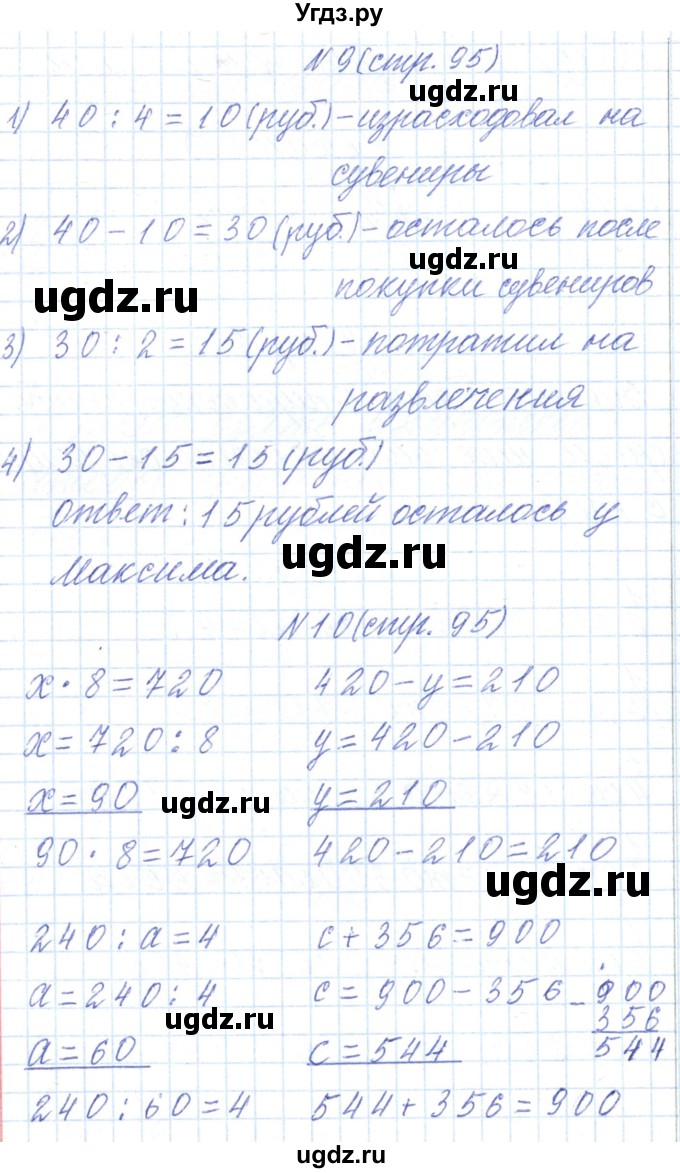 Угдз.ру
N9(стр. 95)
ugdz.ru
1) 40 : 4 = 10 (руб.) - израсходовал на
сувениры
2) 40 - 10 = 30 (руб.) - осталось после
ugdz.ru
ugdz.ru
покупки сувениров
3) 30 : 2 = 15 (руб.) - потратил на
развлечения
4) 30 - 15 = 15 (руб.)
Ответ: 15 рублей осталось у
ugdz.ru
Максима.
N10(стр. 95)
x · 8 = 720
x = 720 : 8
x = 90
ugdz.ru
90 · 8 = 720
420 - y = 210
y = 420 - 210
y = 210
420 - 210 = 210
ugdz.ru
240 : a = 4
a = 240 : 4
ugdz.ru
a = 60
240 : 60 = 4
c + 356 = 900
c = 900 - 356
c = 544
544 + 356 = 900
- 900
356
544
ugdz.ru